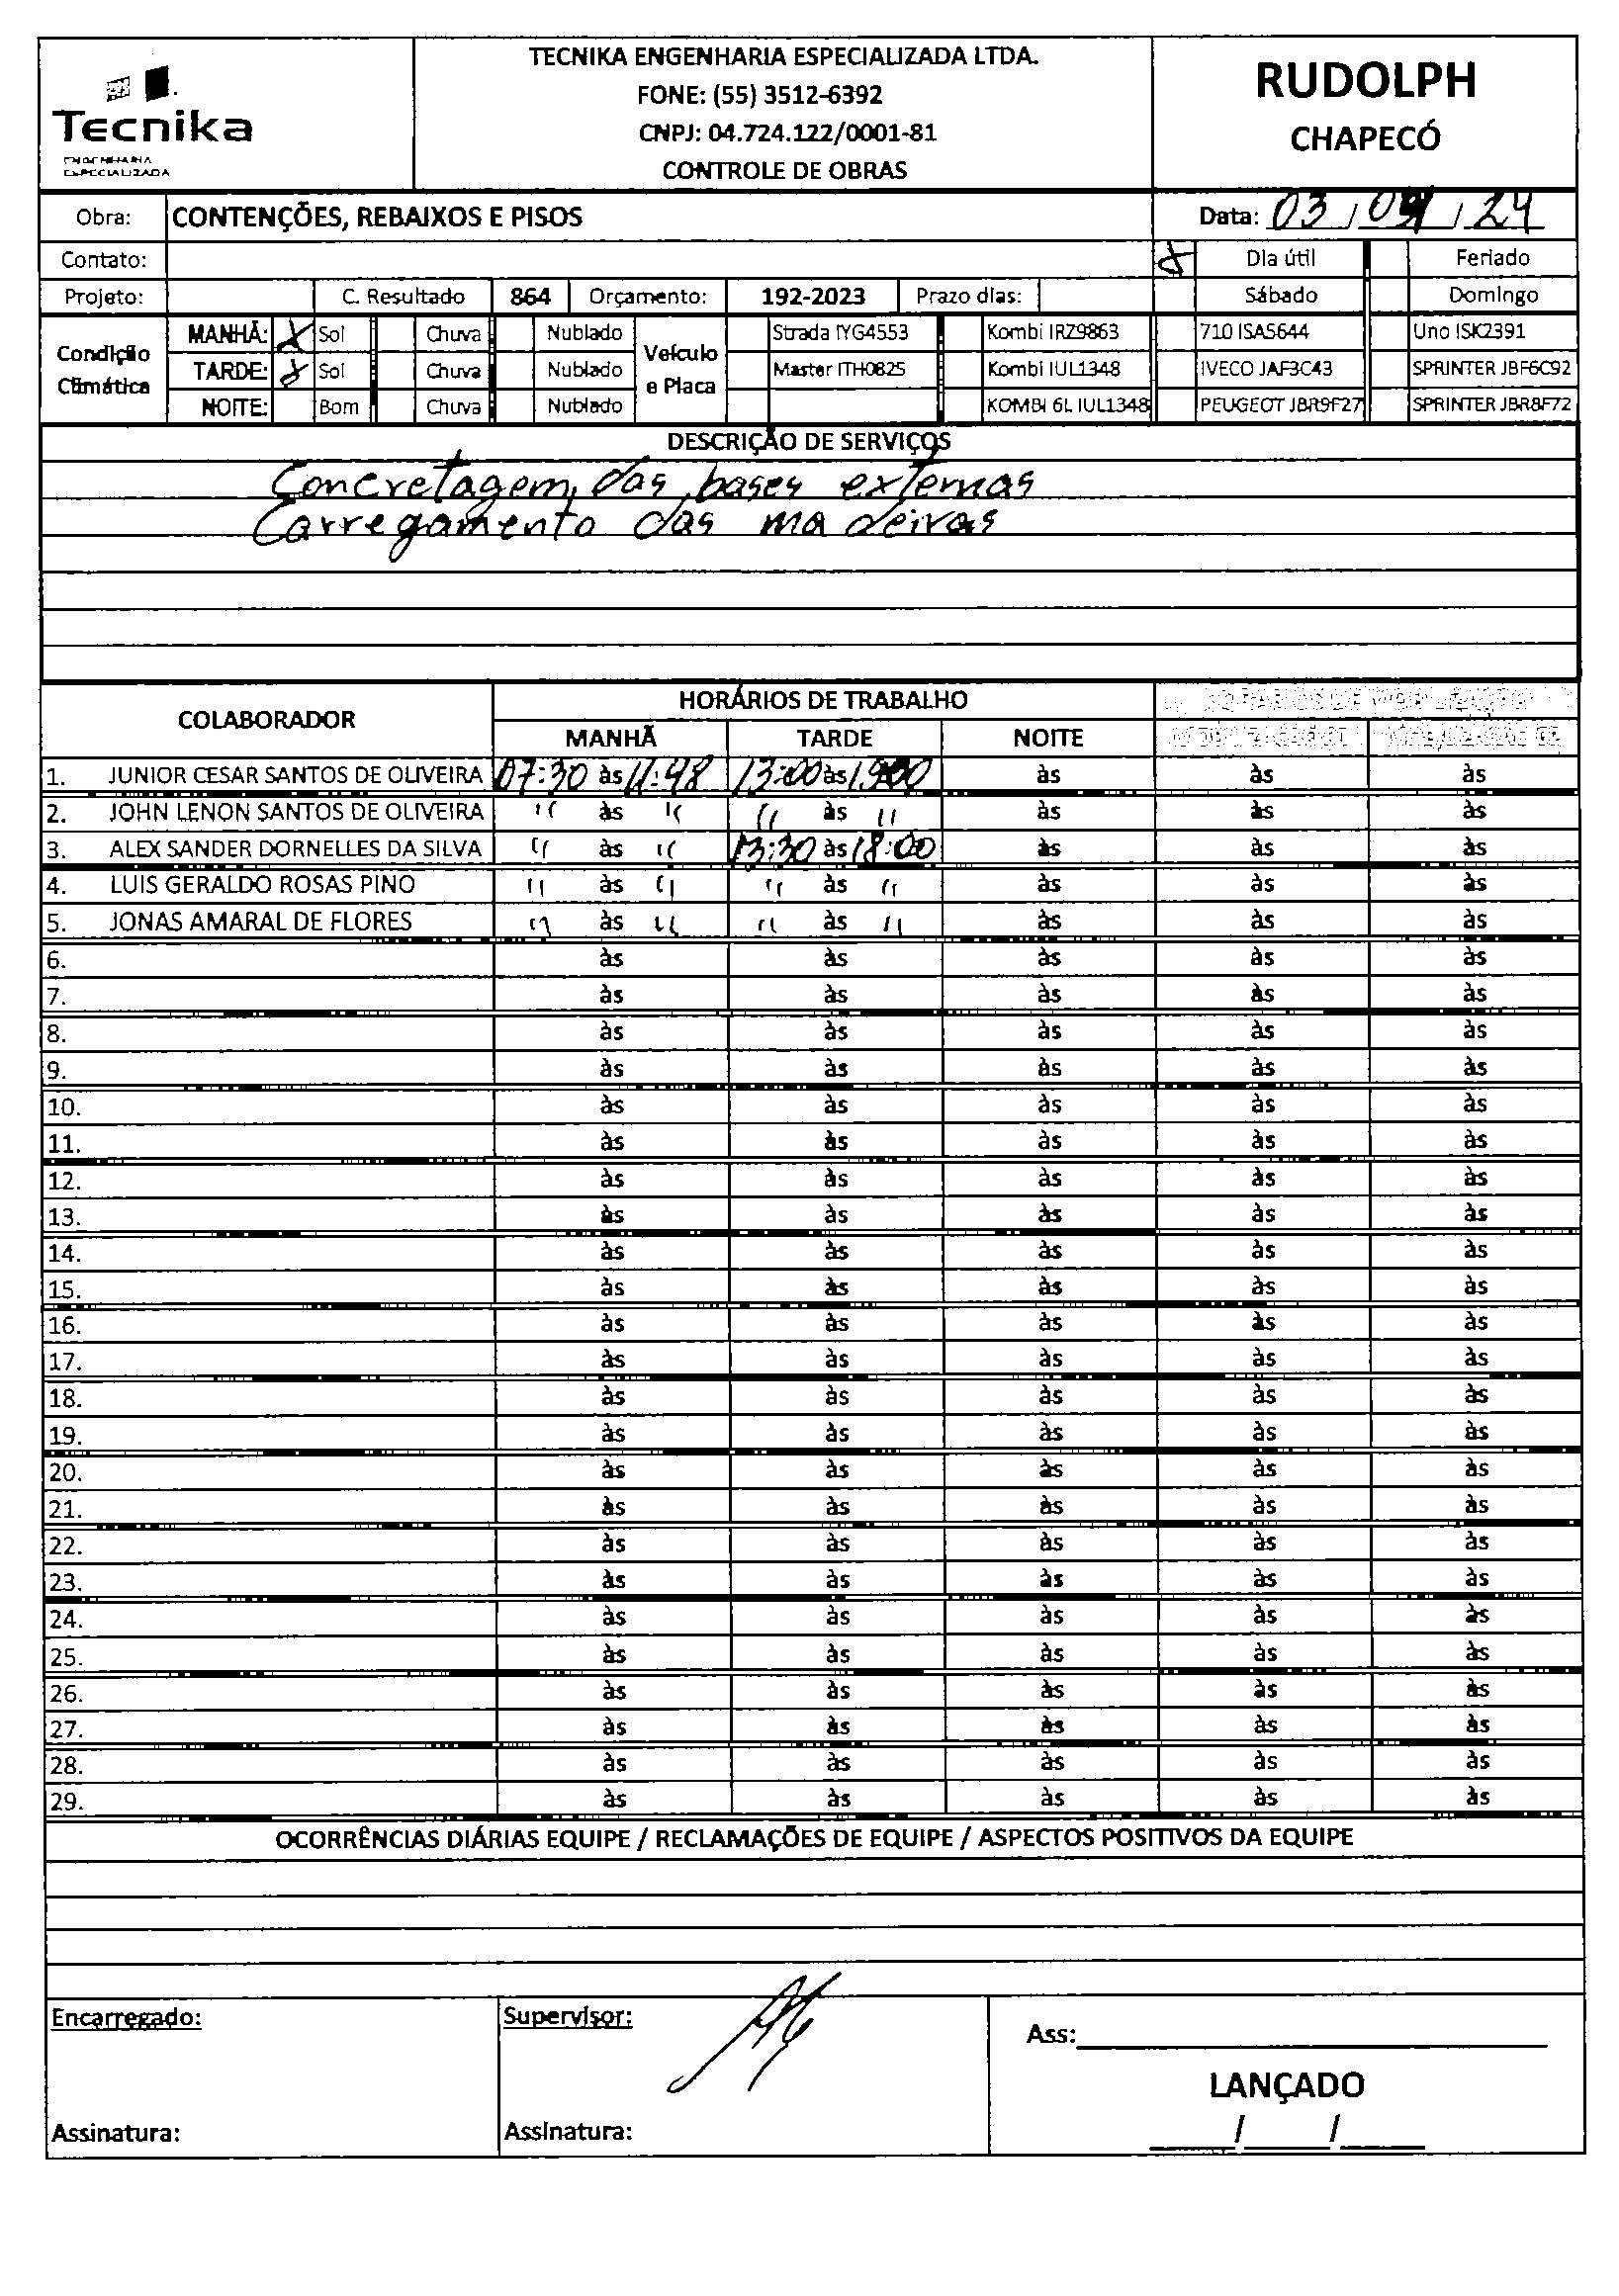 Tecnika
ENGENHARIA
ESPECIALIZADA
TECNIKA ENGENHARIA ESPECIALIZADA LTDA.
FONE: (55) 3512-6392
CNPJ: 04.724.122/0001-81
CONTROLE DE OBRAS
RUDOLPH
CHAPECÓ
Obra: CONTENÇÕES, REBAIXOS E PISOS Data: 03 / 04 / 24
Contato: Dia útil Feriado
Projeto: C. Resultado 864 Orçamento: 192-2023 Prazo dias: Sábado Domingo
Condição Climática Veículo e Placa
MANHÃ: Sol Chuva Nublado Strada IYG4553 Kombi IRZ9863 710 ISA5644 Uno ISK2391
TARDE: Sol Chuva Nublado Master ITH0825 Kombi IUL1348 IVECO JAF3C43 SPRINTER JBF6C92
NOITE: Bom Chuva Nublado KOMBI 6L IUL1348 PEUGEOT JBR9F27 SPRINTER JBR8F72
DESCRIÇÃO DE SERVIÇOS
Concretagem das bases externas
Carregamento das madeiras
COLABORADOR HORÁRIOS DE TRABALHO
MANHÃ TARDE NOITE
1. JUNIOR CESAR SANTOS DE OLIVEIRA 07:30 às 11:48 13:00 às 19:00 às às às
2. JOHN LENON SANTOS DE OLIVEIRA " às " " às " às às às
3. ALEX SANDER DORNELLES DA SILVA " às " 13:30 às 18:00 às às às
4. LUIS GERALDO ROSAS PINO " às " " às " às às às
5. JONAS AMARAL DE FLORES " às " " às " às às às
6. às às às às às
7. às às às às às
8. às às às às às
9. às às às às às
10. às às às às às
11. às às às às às
12. às às às às às
13. às às às às às
14. às às às às às
15. às às às às às
16. às às às às às
17. às às às às às
18. às às às às às
19. às às às às às
20. às às às às às
21. às às às às às
22. às às às às às
23. às às às às às
24. às às às às às
25. às às às às às
26. às às às às às
27. às às às às às
28. às às às às às
29. às às às às às
OCORRÊNCIAS DIÁRIAS EQUIPE / RECLAMAÇÕES DE EQUIPE / ASPECTOS POSITIVOS DA EQUIPE
Encarregado: Supervisor: Ass:
LANÇADO
Assinatura: Assinatura: / /